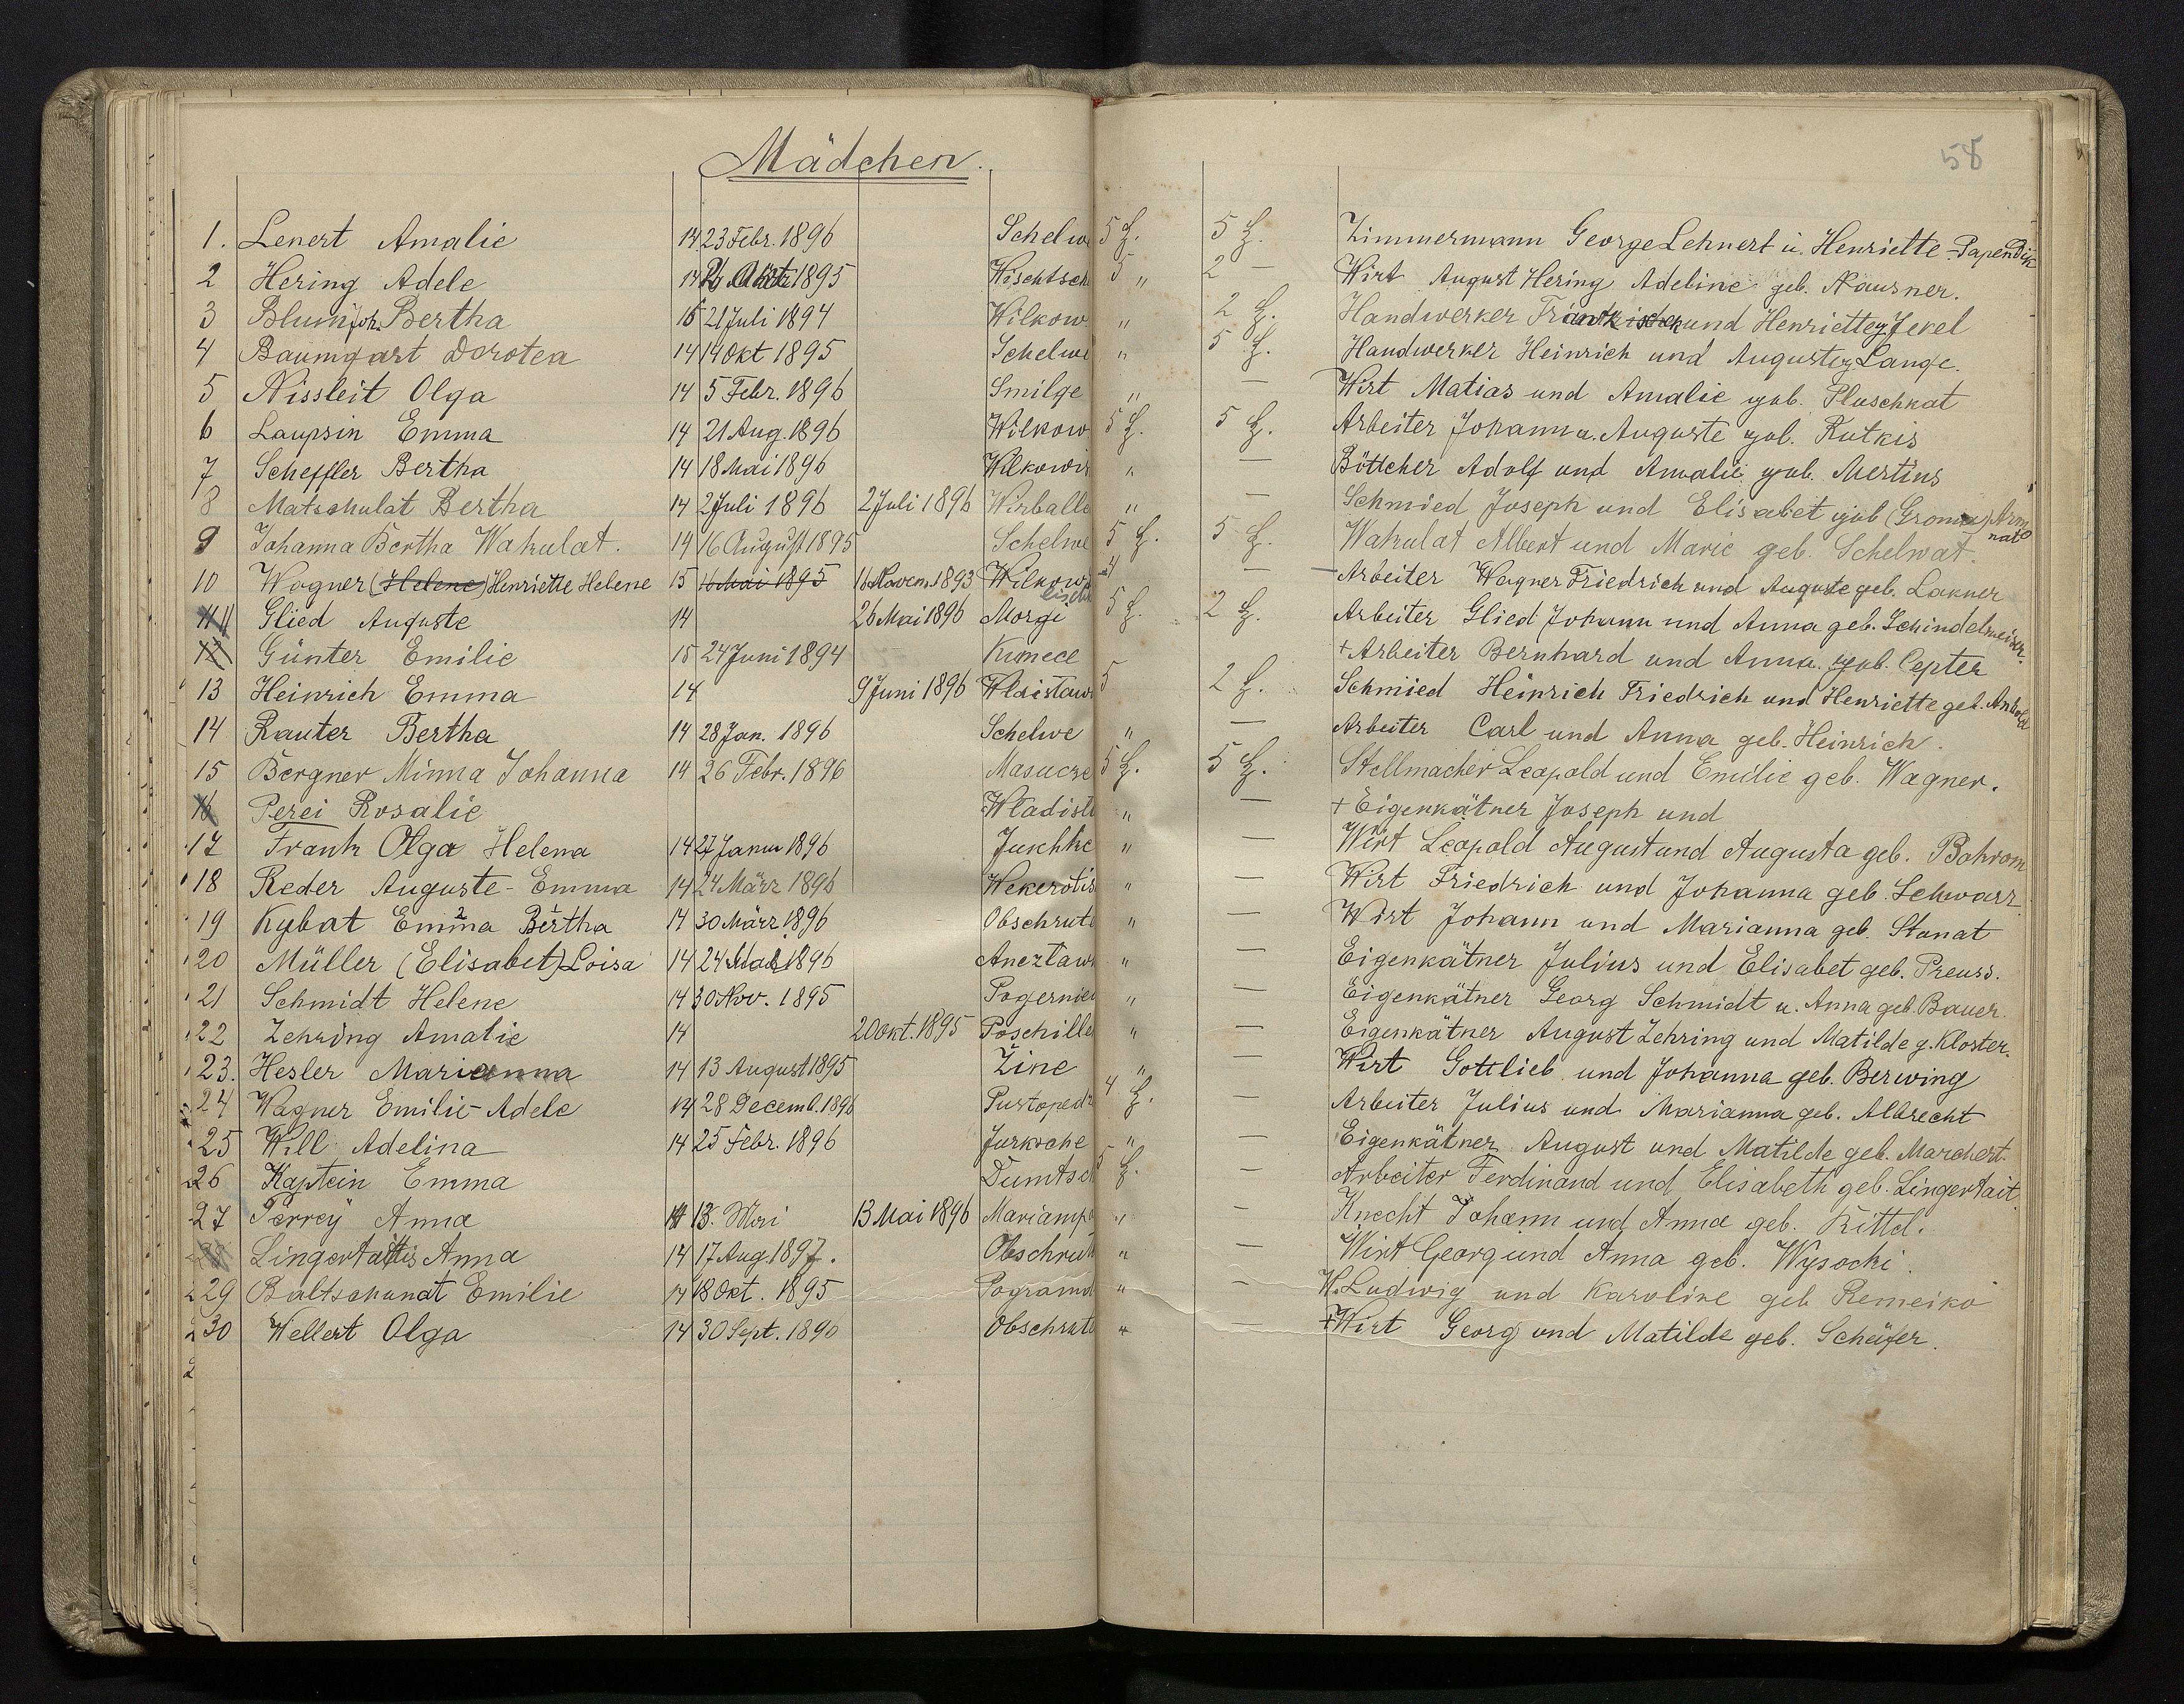 Mädchen.
58
1. Lenert Amalie 14 23 Febr. 1896 Schelw 5 5 Zimmermann George Lehnert u. Henriette Papendik
2 Hering Adele 14 1895 Wischtsch 5 „ 2 — Wirt August Hering Adeline geb. Nausner.
3 Blum Joh. Bertha 15 21 Juli 1894 Wilkow „ 2 Handwerker und Henriette g. Jekel
4 Baumgart Dorotea 14 14 Okt 1895 Schelwe „ 5 Handwerker Heinrich und Auguste g. Lange.
5 Nissleit Olga 14 5 Febr. 1896 Smilge „ — Wirt Matias und Amalie geb. Pluschkat
6 Laupsin Emma 14 21 Aug. 1896 Wilkow 5 5 Arbeiter Johann u. Auguste geb. Rutkis
7 Scheffler Bertha 14 18 Mai 1896 Wilkowi „ — Böttcher Adolf und Amalie geb. Mertins
8 Matschulat Bertha 14 2 Juli 1896 2 Juli 1896 Wirballe „ — Schmied Joseph und Elisabet geb
9 Johanna Bertha Wakulat. 14 16 August 1895 Schelwe 5 5 Wakulat Albert und Marie geb. Schelwat.
10 Wagner (Helene) Henriette Helene 15 16 Mai 1895 16 Novem. 1893 Wilkow — Arbeiter Wagner Friedrich und Auguste geb. Lakner
11 Glied Auguste 14 26 Mai 1896 Morgi 5 2 Arbeiter Glied Johann und Anna geb. Schindelmeiser.
12 Günter Emilie 15 24 Juni 1894 Kumece + Arbeiter Bernhard und Anna geb. Cepter
13 Heinrich Emma 14 9 Juni 1896 Wladislaw 5 2 Schmied Heinrich Friedrich und Henriette geb.
14 Rauter Bertha 14 28 Jan. 1896 Schelwe „ — Arbeiter Carl und Anna geb. Heinrich.
15 Bergner Minna Johanna 14 26 Febr. 1896 Masucze 5 5 Stellmacher Leopold und Emilie geb. Wagner.
16 Perei Rosalie Wladisl „ — + Eigenkätner Joseph und
17 Frank Olga Helena 14 27 Janu 1896 Juschke „ — Wirt Leopold August und Augusta geb. Bohrom
18 Reder Auguste-Emma 14 24 März 1896 Wekerotis „ — Wirt Friedrich und Johanna geb. Schwarz
19 Kybat Emma Bertha 14 30 März 1896 Obschrut „ — Wirt Johann und Marianna geb. Stanat
20 Müller (Elisabet) Loisa 14 24 Mai 1896 Anczlaw „ — Eigenkätner Julius und Elisabet geb. Preuss.
21 Schmidt Helene 14 30 Nov. 1895 Pogernie „ — Eigenkätner Georg Schmidt u. Anna geb. Bauer.
22 Zehring Amalie 14 20 Okt. 1895 Poschille „ — Eigenkätner August Zehring und Matilde g. Kloster.
23. Hesler Marianna 14 13 August 1895 Zine „ — Wirt Gottlieb und Johanna geb. Berwing
24 Wagner Emilie-Adele 14 28 Decemb. 1896 Pustoped 4 — Arbeiter Julius und Marianna geb. Albrecht
25 Will Adelina 14 25 Febr. 1896 Jurksche „ — Eigenkätner August und Matilde geb. Marchert.
26 Kaptein Emma Dumtsch 5 — Arbeiter Ferdinand und Elisabeth geb. Lingertait
27 Perrey Anna 14 13. Mai 13 Mai 1896 Mariamp „ — Knecht Johann und Anna geb. Kittel.
28 Anna 14 17 Aug. 1897. Obschrut „ — Wirt Georg und Anna geb. Wysocki.
29 Baltschunat Emilie 14 18 Okt. 1895 Pogramd „ — W. Ludwig und Karoline geb Remeiko
30 Wellert Olga 14 30 Sept. 1890 Obschrut „ — + Wirt Georg und Matilde geb. Schäfer.